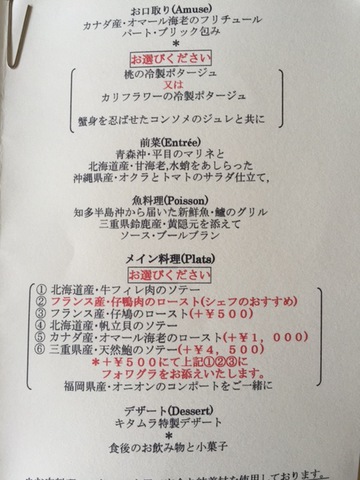 お口取り(Amuse)
カナダ産・オマール海老のフリチュール
パート・ブリック包み
*
お選びください
桃の冷製ポタージュ
又は
カリフラワーの冷製ポタージュ
蟹身を忍ばせたコンソメのジュレと共に
前菜(Entrée)
青森沖・平目のマリネと
北海道産・甘海老,水蛸をあしらった
沖縄県産・オクラとトマトのサラダ仕立て,
魚料理(Poisson)
知多半島沖から届いた新鮮魚・鱸のグリル
三重県鈴鹿産・黄隠元を添えて
ソース・ブールブラン
メイン料理(Plats)
お選びください
① 北海道産・牛フィレ肉のソテー
② フランス産・仔鴨肉のロースト(シェフのおすすめ)
③ フランス産・仔鳩のロースト(+¥500)
④ 北海道産・帆立貝のソテー
⑤ カナダ産・オマール海老のロースト(+¥1,000)
⑥ 三重県産・天然鮑のソテー(+¥4,500)
*+¥500にて上記①②③に
フォワグラをお添えいたします。
福岡県産・オニオンのコンポートをご一緒に
デザート(Dessert)
キタムラ特製デザート
*
食後のお飲み物と小菓子
を使用しております。